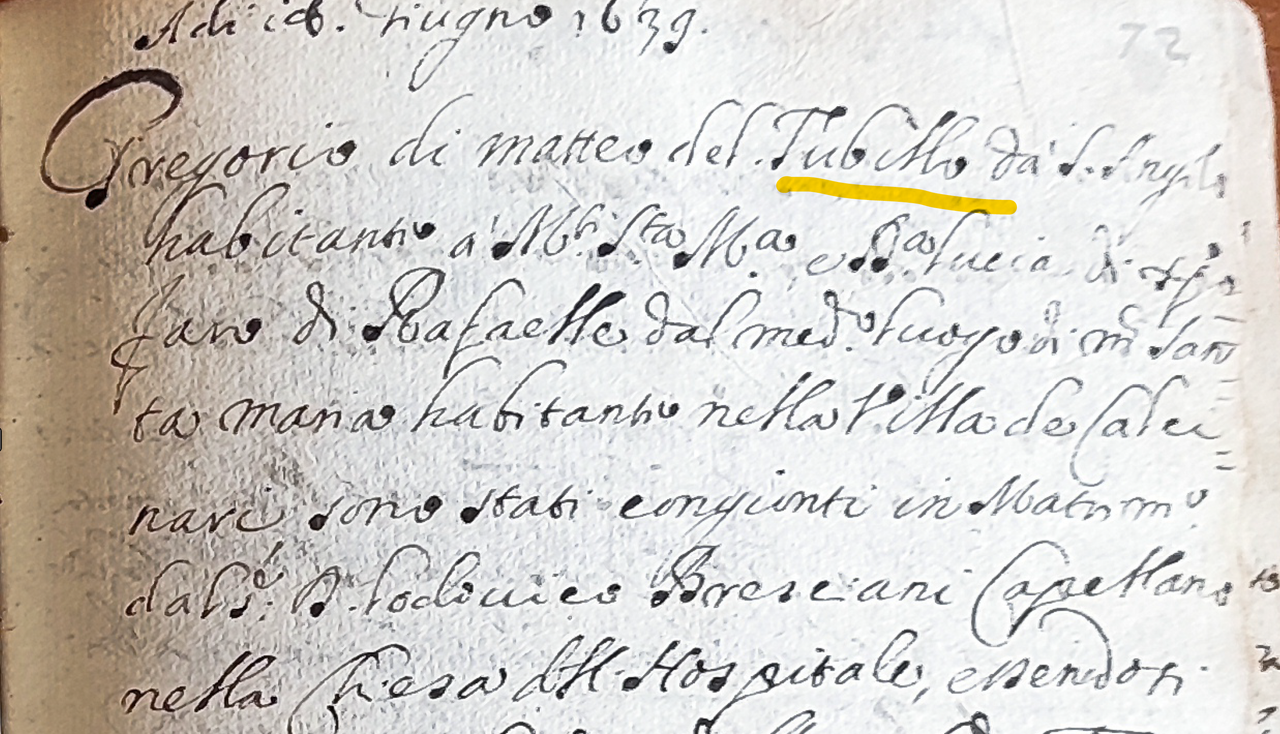 Adi 16. Giugno 1639.
72
Gregorio di matteo del Tubillo da S. Angelo
habitante a Mte Sta Ma e Da lucia di
faro di Rafaelle dal medo luogo di m San
ta maria habitante nella Villa de Calci
nari sono stati congionti in Matrimo
dal Sr D. lodouico Bresciani Capellano
nella Chiesa dell Hospitale, essendosi